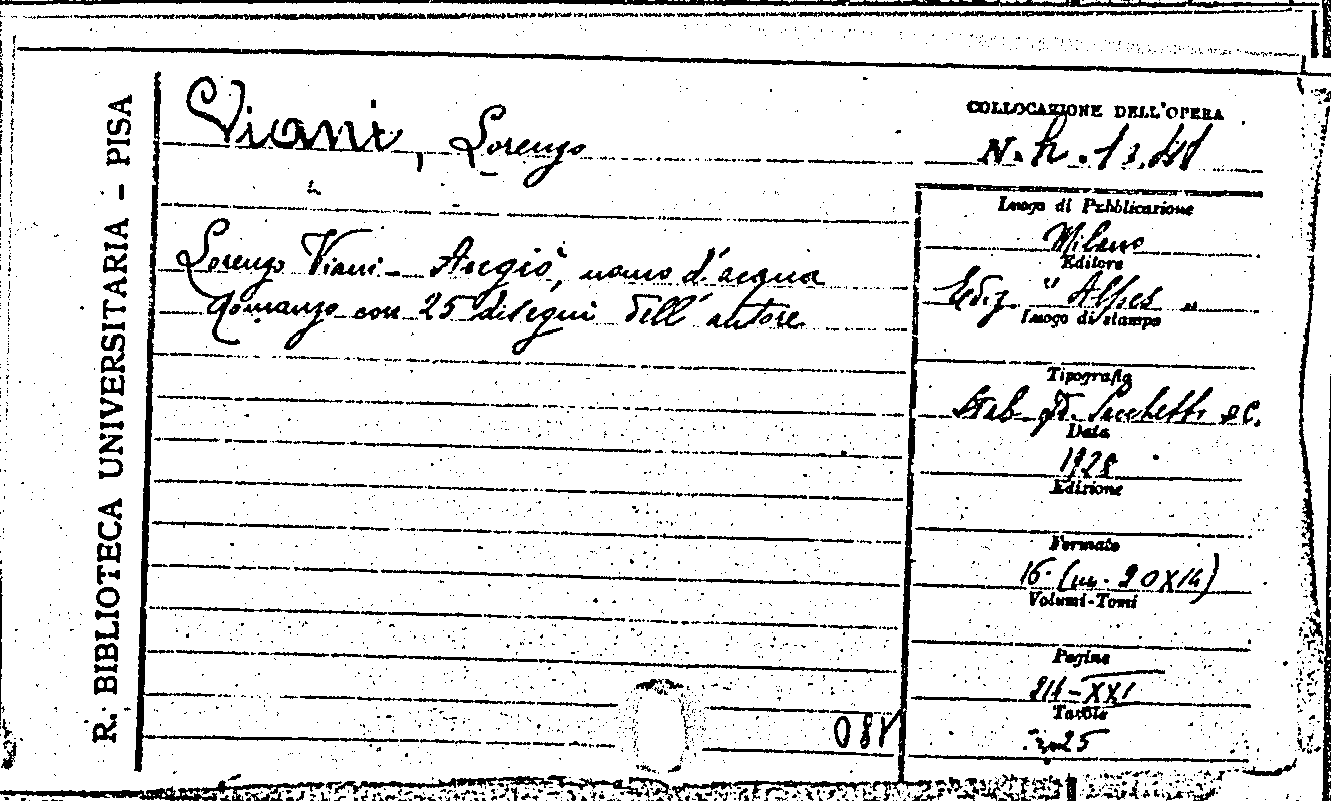 R. BIBLIOTECA UNIVERSITARIA - PISA
Viani, Lorenzo
Lorenzo Viani - Angiò, uomo d'acqua
Romanzo con 25 disegni dell'autore
COLLOCAZIONE DELL'OPERA
N. h. 13.
Luogo di Pubblicazione
Milano
Editore
Ediz. "Alpes"
Luogo di stampa
Tipografia
Stab. Sacchetti e C.
Data
1928
Edizione
Formato
16. (20X14)
Volumi-Tomi
Pagine
214-XXI
Tavole
25